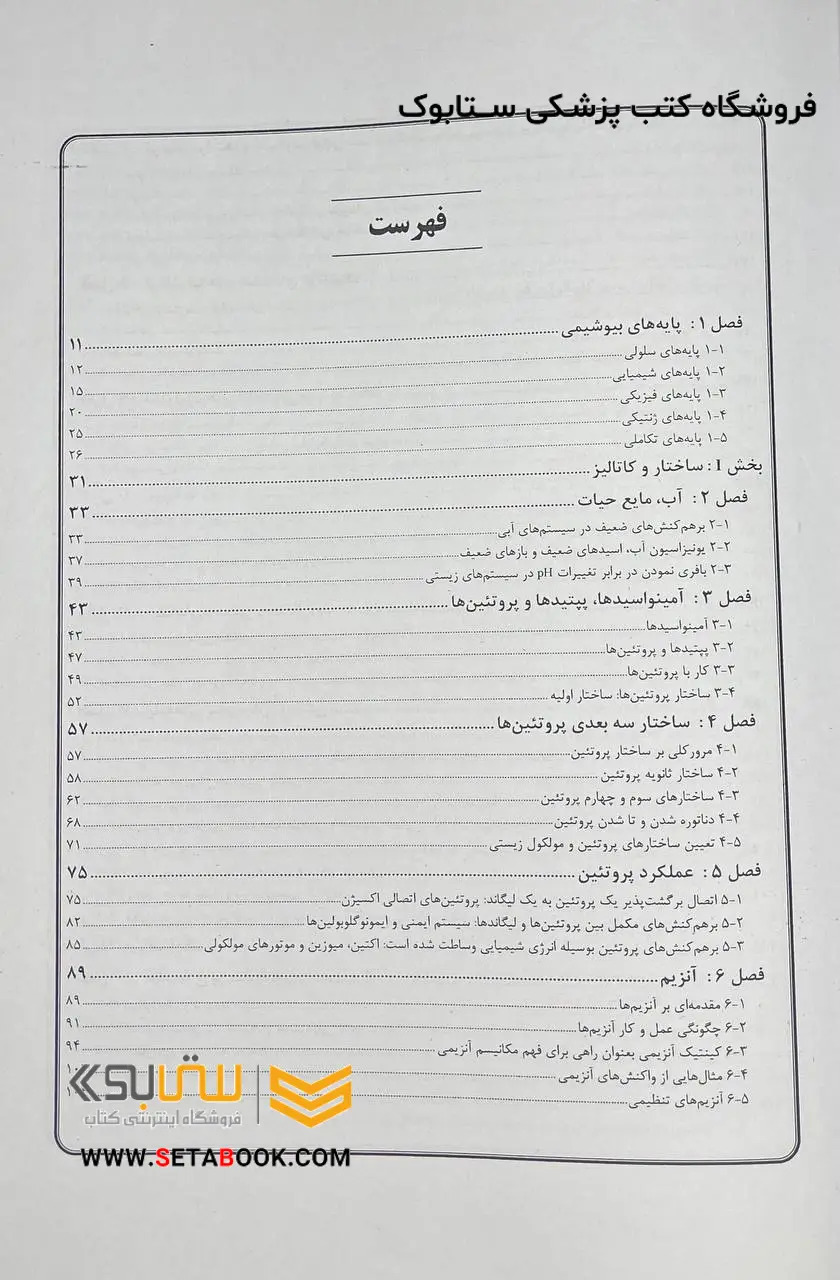 فروشگاه کتب پزشکی ستابوک
فهرست
فصل ۱: پایه‌های بیوشیمی ..... ۱۱
۱-۱ پایه‌های سلولی ..... ۱۲
۱-۲ پایه‌های شیمیایی ..... ۱۵
۱-۳ پایه‌های فیزیکی ..... ۲۰
۱-۴ پایه‌های ژنتیکی ..... ۲۵
۱-۵ پایه‌های تکاملی ..... ۲۶
بخش I: ساختار و کاتالیز ..... ۳۱
فصل ۲: آب، مایع حیات ..... ۳۳
۲-۱ برهم‌کنش‌های ضعیف در سیستم‌های آبی ..... ۳۳
۲-۲ یونیزاسیون آب، اسیدهای ضعیف و بازهای ضعیف ..... ۳۷
۲-۳ بافری نمودن در برابر تغییرات pH در سیستم‌های زیستی ..... ۳۹
فصل ۳: آمینواسیدها، پپتیدها و پروتئین‌ها ..... ۴۳
۳-۱ آمینواسیدها ..... ۴۳
۳-۲ پپتیدها و پروتئین‌ها ..... ۴۷
۳-۳ کار با پروتئین‌ها ..... ۴۹
۳-۴ ساختار پروتئین‌ها: ساختار اولیه ..... ۵۲
فصل ۴: ساختار سه بعدی پروتئین‌ها ..... ۵۷
۴-۱ مرورکلی بر ساختار پروتئین ..... ۵۷
۴-۲ ساختار ثانویه پروتئین ..... ۵۸
۴-۳ ساختارهای سوم و چهارم پروتئین ..... ۶۲
۴-۴ دناتوره شدن و تا شدن پروتئین ..... ۶۸
۴-۵ تعیین ساختارهای پروتئین و مولکول زیستی ..... ۷۱
فصل ۵: عملکرد پروتئین ..... ۷۵
۵-۱ اتصال برگشت‌پذیر یک پروتئین به یک لیگاند: پروتئین‌های اتصالی اکسیژن ..... ۷۵
۵-۲ برهم‌کنش‌های مکمل بین پروتئین‌ها و لیگاندها: سیستم ایمنی و ایمونوگلوبولین‌ها ..... ۸۲
۵-۳ برهم‌کنش‌های پروتئین بوسیله انرژی شیمیایی وساطت شده است: اکتین، میوزین و موتورهای مولکولی ..... ۸۵
فصل ۶: آنزیم ..... ۸۹
۶-۱ مقدمه‌ای بر آنزیم‌ها ..... ۸۹
۶-۲ چگونگی عمل و کار آنزیم‌ها ..... ۹۱
۶-۳ کینتیک آنزیمی بعنوان راهی برای فهم مکانیسم آنزیمی ..... ۹۴
۶-۴ مثال‌هایی از واکنش‌های آنزیمی
۶-۵ آنزیم‌های تنظیمی
ستابوک
فروشگاه اینترنتی کتاب
WWW.SETABOOK.COM